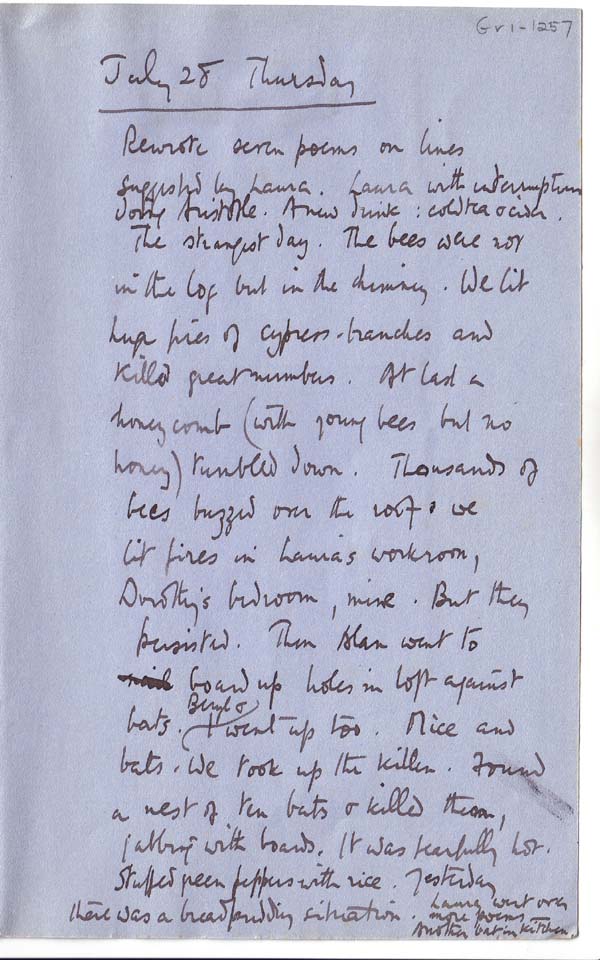 Gr1-1257
July 28 Thursday
Rewrote seven poems on lines
suggested by Laura. Laura with interruptions
doing Aristotle. A new drink: cold tea & cider.
The strangest day. The bees were not
in the log but in the chimney. We lit
huge fires of cypress-branches and
killed great numbers. At last a
honeycomb (with young bees but no
honey) tumbled down. Thousands of
bees buzzed over the roof & we
lit fires in Laura's workroom,
Dorothy's bedroom, mine. But they
persisted. Then Alan went to
board up holes in loft against
Beryl &
bats. I went up too. Mice and
bats. We took up the kitten. Found
a nest of ten bats & killed them,
jabbing with boards. It was fearfully hot.
Stuffed green peppers with rice. Yesterday
there was a breadpudding situation. Laura went over
more poems
Another bat in kitchen.